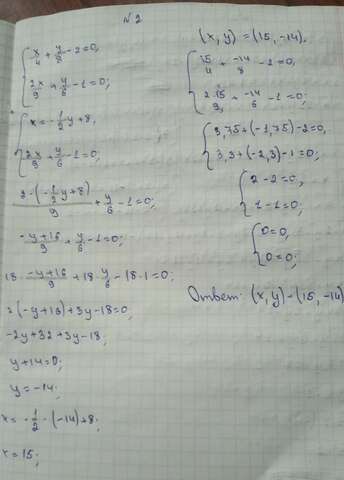 №2
x/4 + y/8 - 2 = 0,
2x/9 + y/6 - 1 = 0;
x = -1/2 y + 8,
2x/9 + y/6 - 1 = 0;
2·(-1/2 y + 8)/9 + y/6 - 1 = 0;
-y+16/9 + y/6 - 1 = 0;
18· -y+16/9 + 18· y/6 - 18·1 = 0;
2(-y+16) + 3y - 18 = 0,
-2y + 32 + 3y - 18,
y + 14 = 0;
y = -14;
x = -1/2 · (-14) + 8;
x = 15;
(x, y) = (15, -14).
15/4 + -14/8 - 2 = 0,
2·15/9 + -14/6 - 1 = 0;
3,75 + (-1,75) - 2 = 0,
3,3 + (-2,3) - 1 = 0;
2 - 2 = 0,
1 - 1 = 0;
0 = 0,
0 = 0;
Ответ: (x, y) - (15, -14)